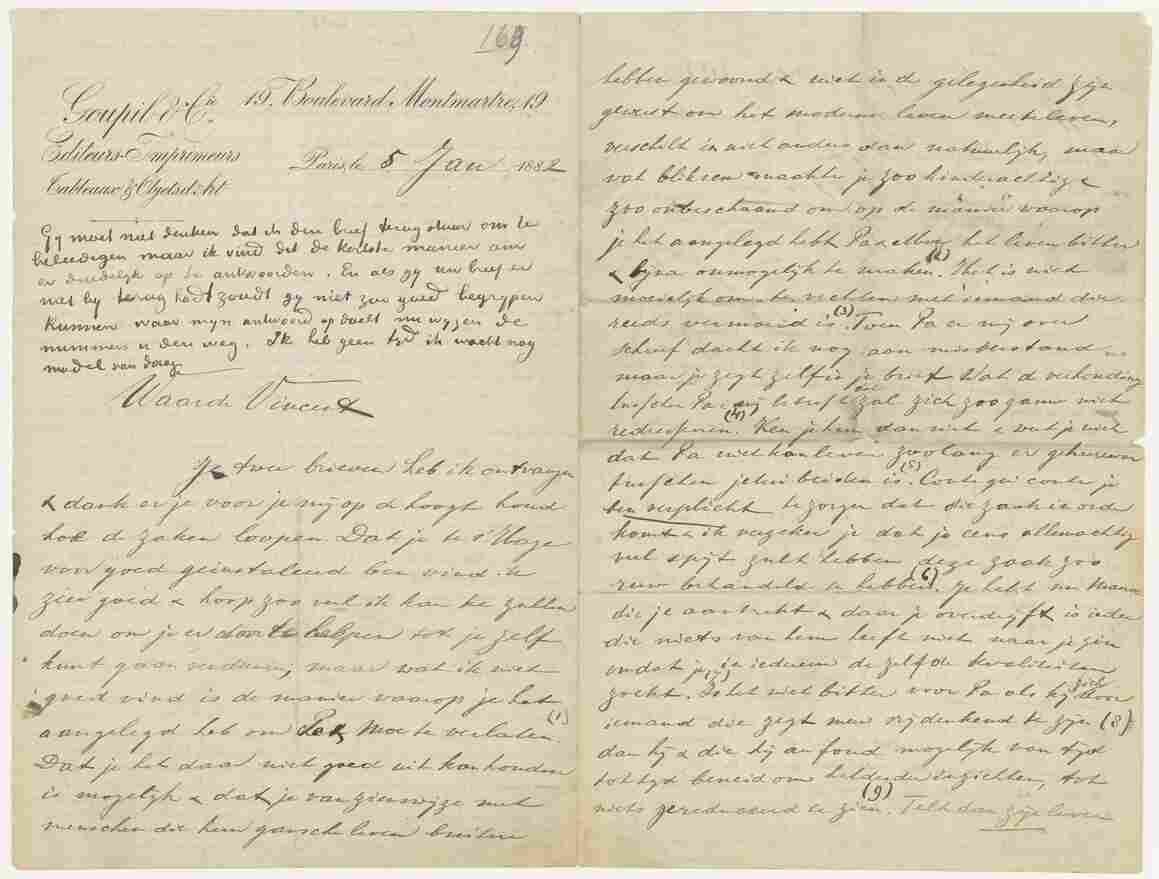 169
Goupil & Cie 19, Boulevard Montmartre, 19
Éditeurs-Imprimeurs
Paris, le 5 Jan 1882
Tableaux & Objets d'Art
Gy moet niet denken dat ik den brief terug stuur om te
beleedigen maar ik vind dit de kortste manier om
er duidelijk op te antwoorden. En als gy uw brief er
niet by terug hadt zoudt gy niet zoo goed begrypen
kunnen waar myn antwoord op slaat nu wyzen de
nummers u den weg. Ik heb geen tyd ik wacht nog
model van daag
Waarde Vincent
Je twee brieven heb ik ontvangen
& dank er je voor je mij op de hoogte houd
hoe de zaken loopen. Dat je te s'Hage
voor goed geïnstaleerd ben vind ik
zeer goed & hoop zoo veel ik kan te zullen
doen om je er door te helpen tot je zelf
kunt gaan verdienen, maar wat ik niet
goed vind is de manier waarop je het
aangelegd heb om Pa & Moe te verlaten. (1)
Dat je het daar niet goed uit kon houden
is mogelijk & dat je van zienswijze met
menschen die hun gansche leven buiten
hebben gewoond & niet in de gelegenheid zijn
geweest om het moderne leven mee te leven,
verschilt is niet anders dan natuurlijk, maar
wat bliksem maakte je zoo kinderachtig &
zoo onbeschaamd om op de manier waarop
je het aangelegd hebt Pa & Moe het leven bitter (2)
& bijna onmogelijk te maken. Het is niet
moeielijk om te vechten met iemand die
reeds vermoeid is. (3) Toen Pa er mij over
schreef dacht ik nog aan misverstand
maar je zegt zelf in je brief Wat de verhouding
tusschen Pa & mij betreft dat zal zich zoo gauw niet
redresseeren. (4) Ken je hem dan niet & voel je niet
dat Pa niet kan leven zoolang er gehaspel
tusschen jelui beiden is. (5) Coute que coute je
ben verplicht te zorgen dat die zaak in orde
komt & ik verzeker je dat je eens allemachtig
veel spijt zult hebben deze zaak zoo
ruw behandeld te hebben. (6) Je hebt nu Mauve
die je aantrekt & daar je overdrijft is ieder
die niets van hem heeft niet naar je zin
omdat je (7) in iedereen de zelfde kwaliteiten
zoekt. Is het niet bitter voor Pa als hij zich door
iemand die zegt meer vrijdenkend te zijn (8)
dan hij & die hij au fond mogelijk van tijd
tot tijd beneid om helderder inzichten, tot
niets gereduceerd te zien. (9) Telt dan zijn leven